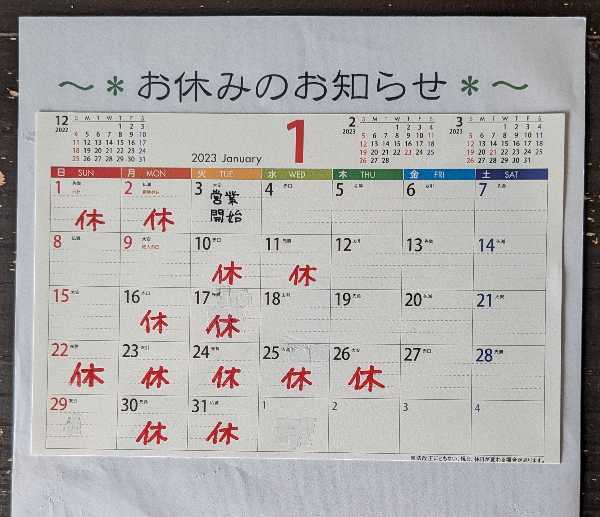 ～＊お休みのお知らせ＊～
12 2022
S M T W T F S
1 2 3
4 5 6 7 8 9 10
11 12 13 14 15 16 17
18 19 20 21 22 23 24
25 26 27 28 29 30 31
2023 January
1
2 2023
S M T W T F S
1 2 3 4
5 6 7 8 9 10 11
12 13 14 15 16 17 18
19 20 21 22 23 24 25
26 27 28
3 2023
S M T W T F S
1 2 3 4
5 6 7 8 9 10 11
12 13 14 15 16 17 18
19 20 21 22 23 24 25
26 27 28 29 30 31
日 SUN 月 MON 火 TUE 水 WED 木 THU 金 FRI 土 SAT
1 2 3 4 5 6 7
休 休 営業開始
8 9 10 11 12 13 14
休 休
15 16 17 18 19 20 21
休 休
22 23 24 25 26 27 28
休 休 休 休 休
29 30 31 1 2 3 4
休 休